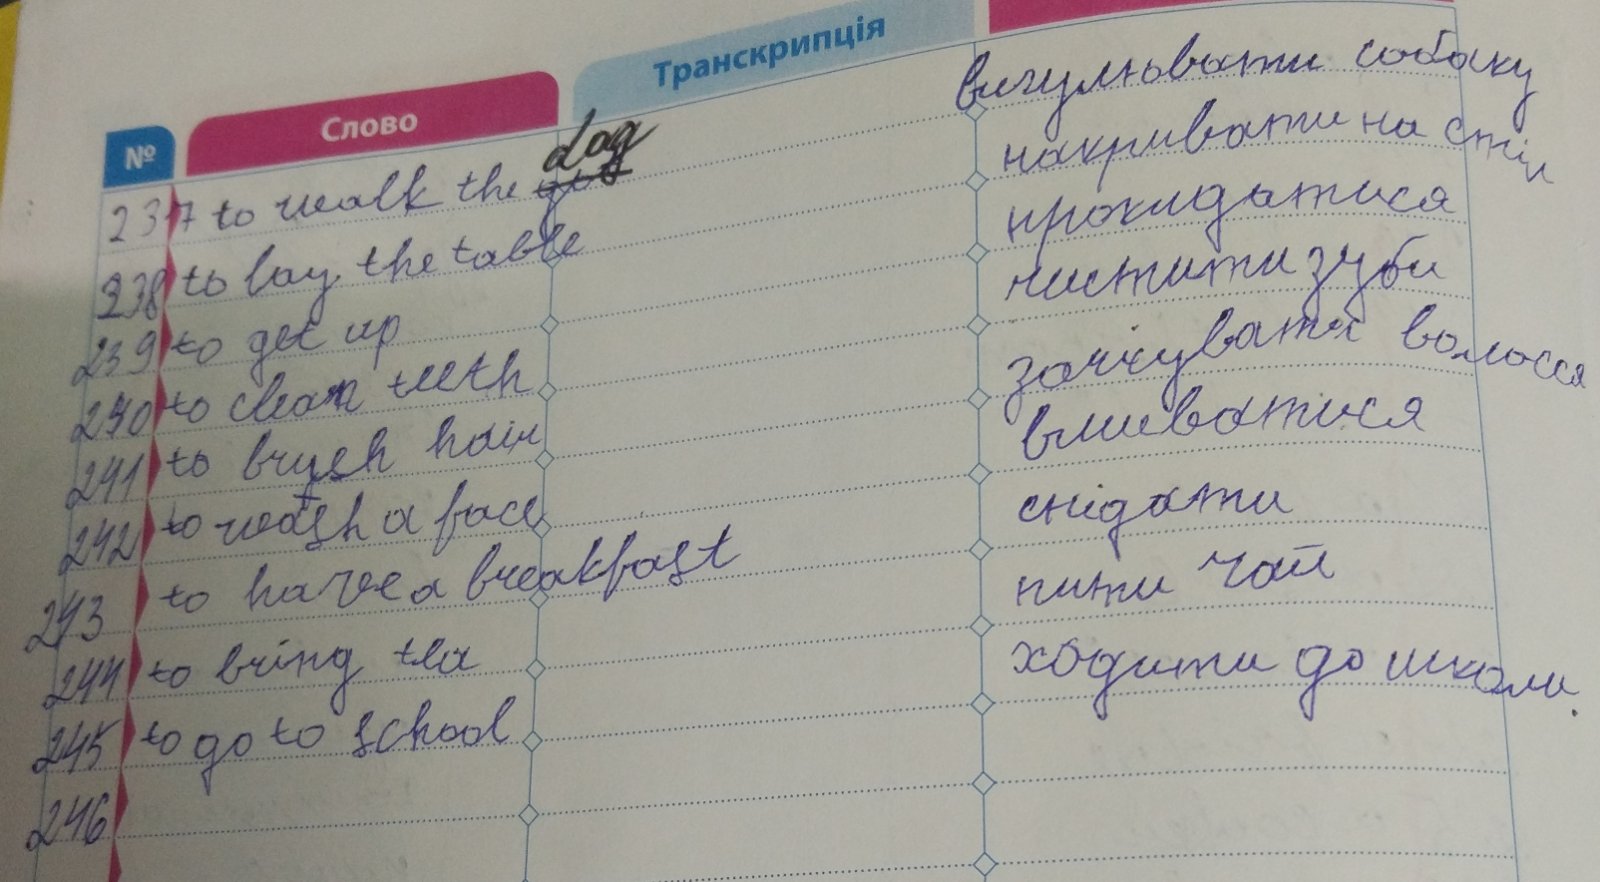 № Слово Транскрипція
237 to walk the dog вигулювати собаку
238 to lay the table накривати на стіл
239 to get up прокидатися
240 to clean teeth чистити зуби
241 to brush hair зачісувати волосся
242 to wash a face вмиватися
243 to have a breakfast снідати
244 to bring tea пити чай
245 to go to school ходити до школи.
246